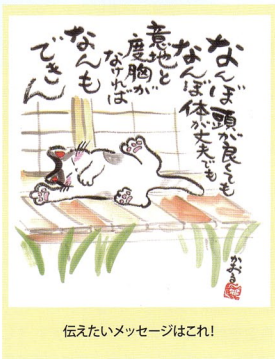 なんぼ頭が良くても
なんぼ体が丈夫でも
意地と
度胸が
なければ
なんも
できん
かおる
伝えたいメッセージはこれ!